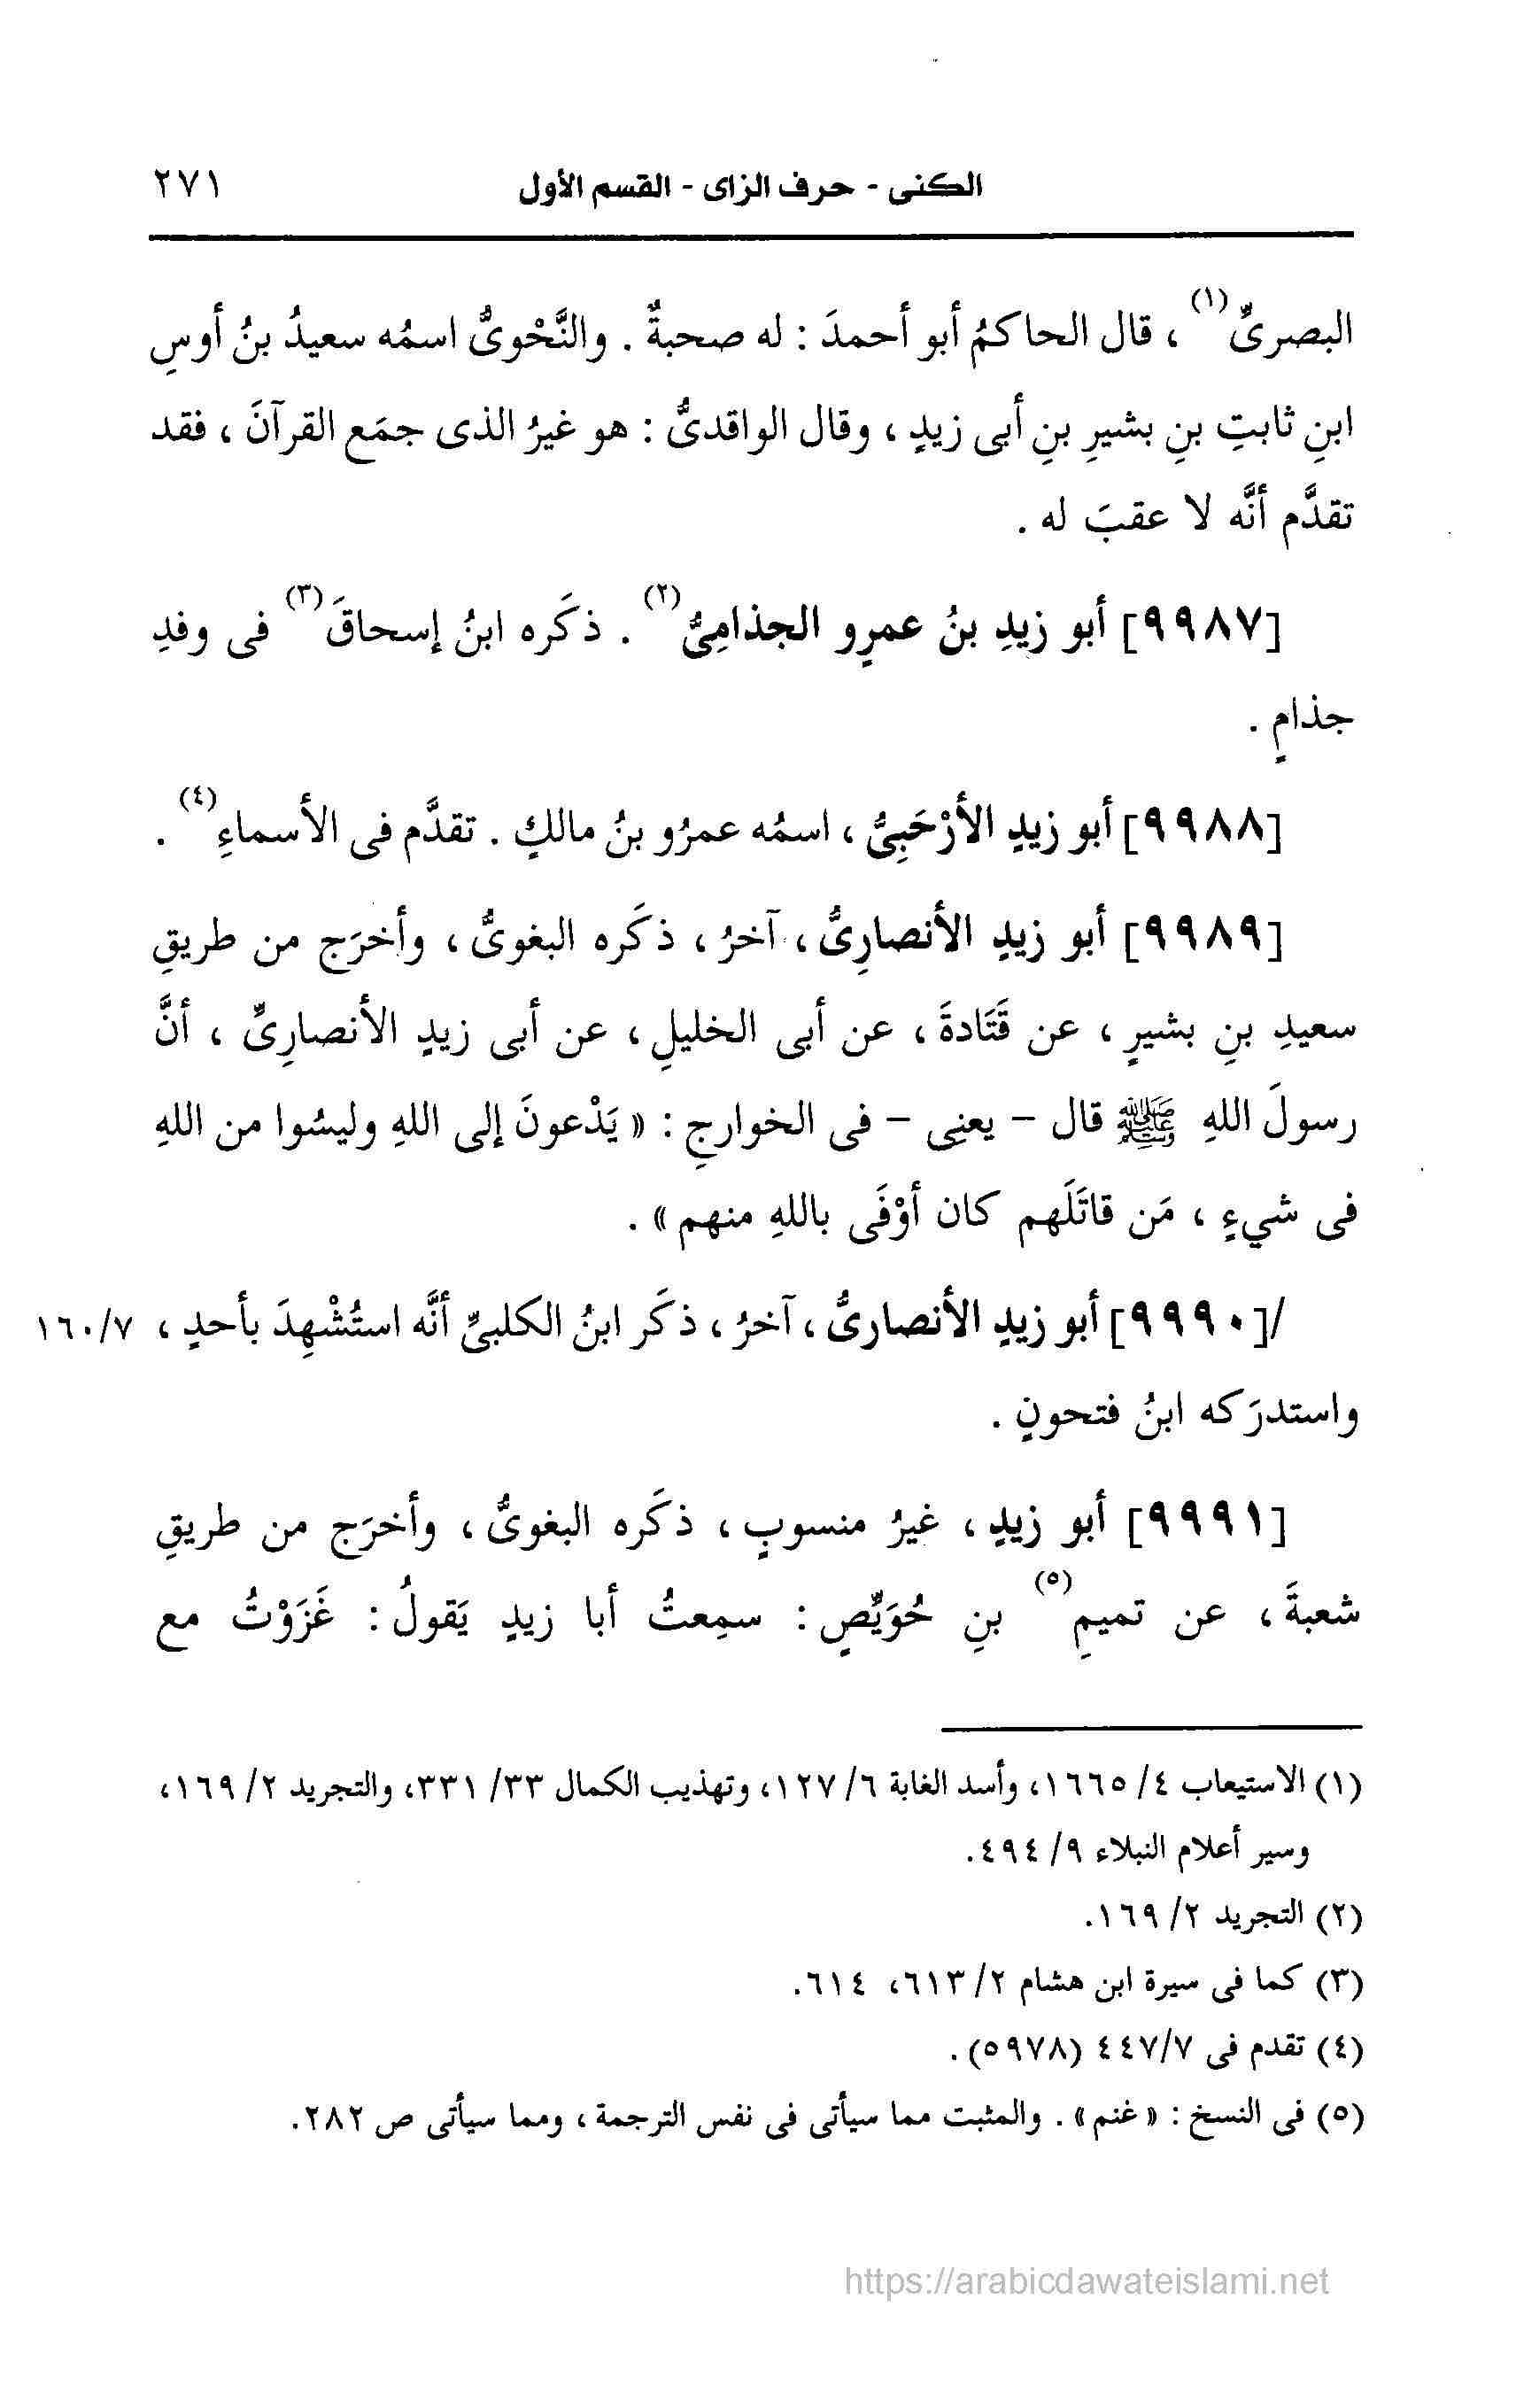 الكنى - حرف الزاى - القسم الأول ٢٧١
البصرىِّ(١) ، قال الحاكمُ أبو أحمدَ : له صحبةٌ . والنَّحْوىُّ اسمُه سعيدُ بنُ أوسِ
ابنِ ثابتِ بنِ بشيرِ بنِ أبى زيدٍ ، وقال الواقدىُّ : هو غيرُ الذى جمَع القرآنَ ، فقد
تقدَّم أنَّه لا عقبَ له .
[٩٩٨٧] أبو زيدِ بنُ عمرٍو الجذامِىُّ(٢) . ذكَره ابنُ إسحاقَ(٣) فى وفدِ
جذامٍ .
[٩٩٨٨] أبو زيدٍ الأرْحَبِىُّ ، اسمُه عمرُو بنُ مالكٍ . تقدَّم فى الأسماءِ(٤) .
[٩٩٨٩] أبو زيدٍ الأنصارِىُّ ، آخرُ ، ذكَره البغوىُّ ، وأخرَج من طريقِ
سعيدِ بنِ بشيرٍ ، عن قَتَادةَ ، عن أبى الخليلِ ، عن أبى زيدٍ الأنصارِىِّ ، أنَّ
رسولَ اللهِ ﷺ قال - يعنِى - فى الخوارجِ : « يَدْعونَ إلى اللهِ وليسُوا من اللهِ
فى شيءٍ ، مَن قاتَلَهم كان أوْفَى باللهِ منهم » .
/[٩٩٩٠] أبو زيدٍ الأنصارىُّ ، آخرُ ، ذكَر ابنُ الكلبىِّ أنَّه استُشْهِدَ بأحدٍ ، ١٦٠/٧
واستدرَكه ابنُ فتحونٍ .
[٩٩٩١] أبو زيدٍ ، غيرُ منسوبٍ ، ذكَره البغوىُّ ، وأخرَج من طريقِ
شعبةَ ، عن تميمِ(٥) بنِ حُوَيِّصٍ : سمِعتُ أبا زيدٍ يَقولُ : غَزَوْتُ مع
(١) الاستيعاب ٤/ ١٦٦٥، وأسد الغابة ٦/ ١٢٧، وتهذيب الكمال ٣٣/ ٣٣١، والتجريد ٢/ ١٦٩،
وسير أعلام النبلاء ٩/ ٤٩٤.
(٢) التجريد ٢/ ١٦٩.
(٣) كما فى سيرة ابن هشام ٢/ ٦١٣، ٦١٤.
(٤) تقدم فى ٤٤٧/٧ (٥٩٧٨) .
(٥) فى النسخ : « غنم » . والمثبت مما سيأتى فى نفس الترجمة ، ومما سيأتى ص ٢٨٢.
https://arabicdawateislami.net